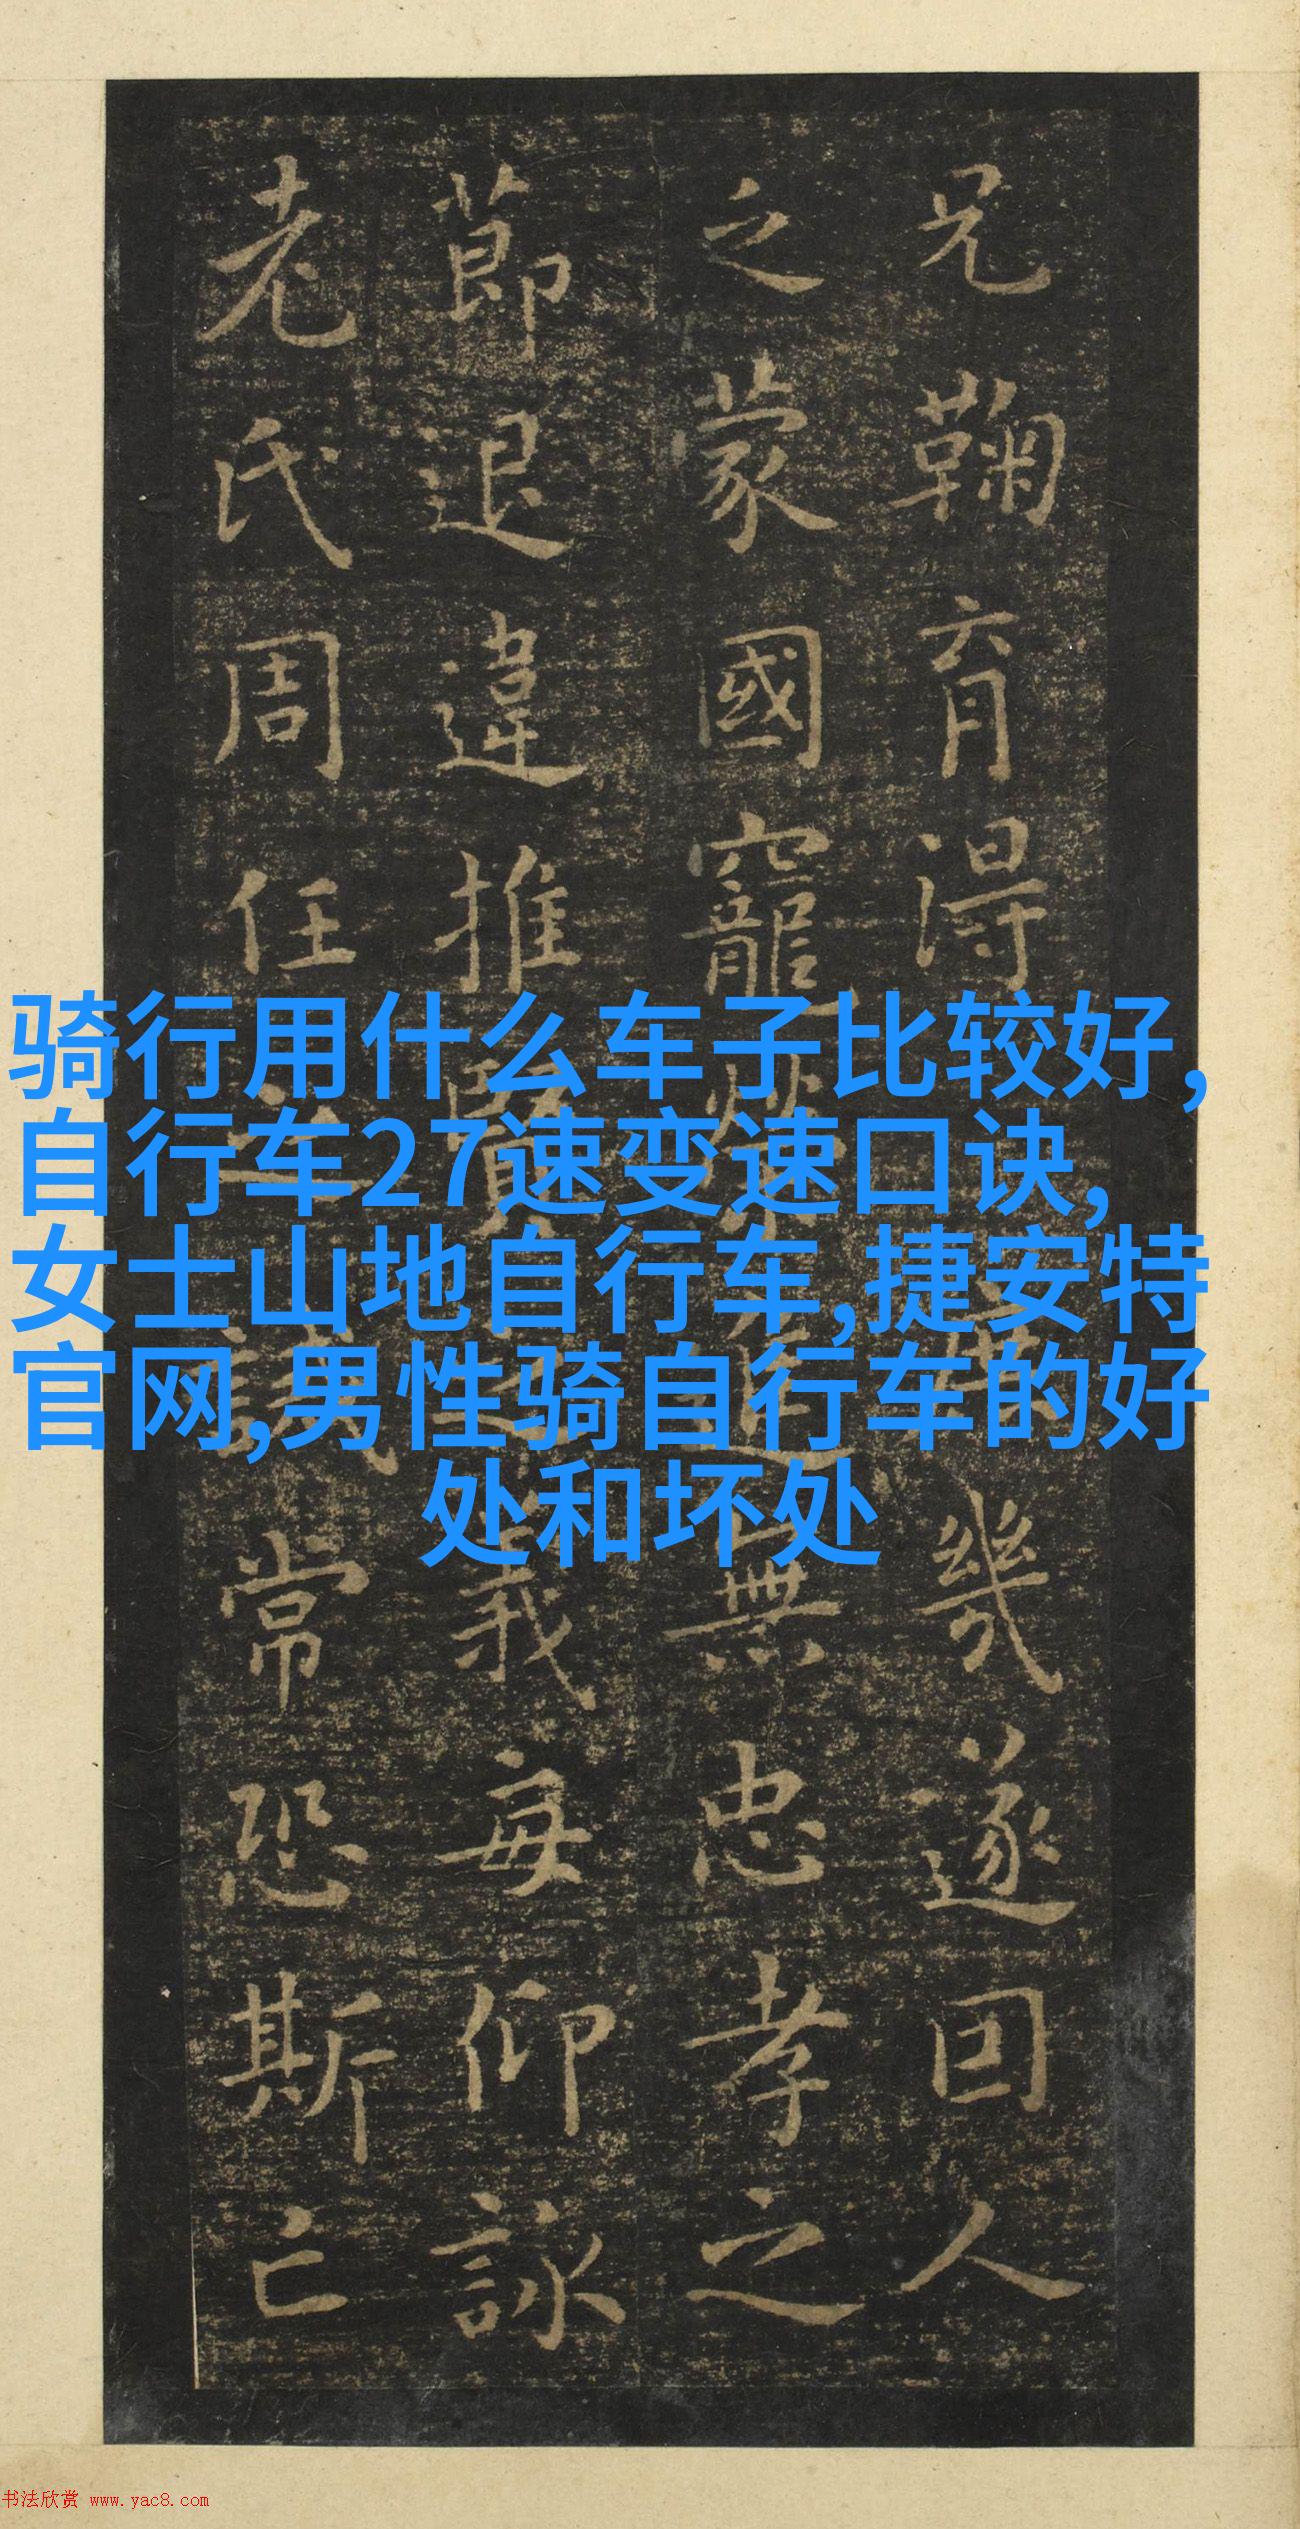 兄鞠育得
幾遂回人
之蒙國寵
無忠孝之
節退違推
義每仰詠
老氏周任
常恐斯亡
骑行用什么车子比较好,
自行车27速变速口诀,
女士山地自行车,捷安特
官网,男性骑自行车的好
处和坏处
书法欣赏 www.yac8.com